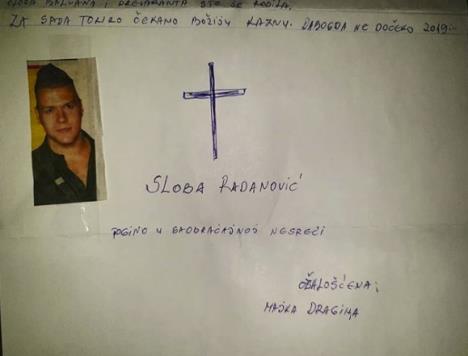 BALVANA I ŠTO SE RODILA,
ZA SADA TOLIKO ČEKAMO BOŽIJU KAZNU. DABOGDA NE DOČEKO 2019..
SLOBA RADANOVIĆ
POGINO U SAOBRAĆAJNOJ NESREĆI
OŽALOŠĆENA;
MAJKA DRAGINA